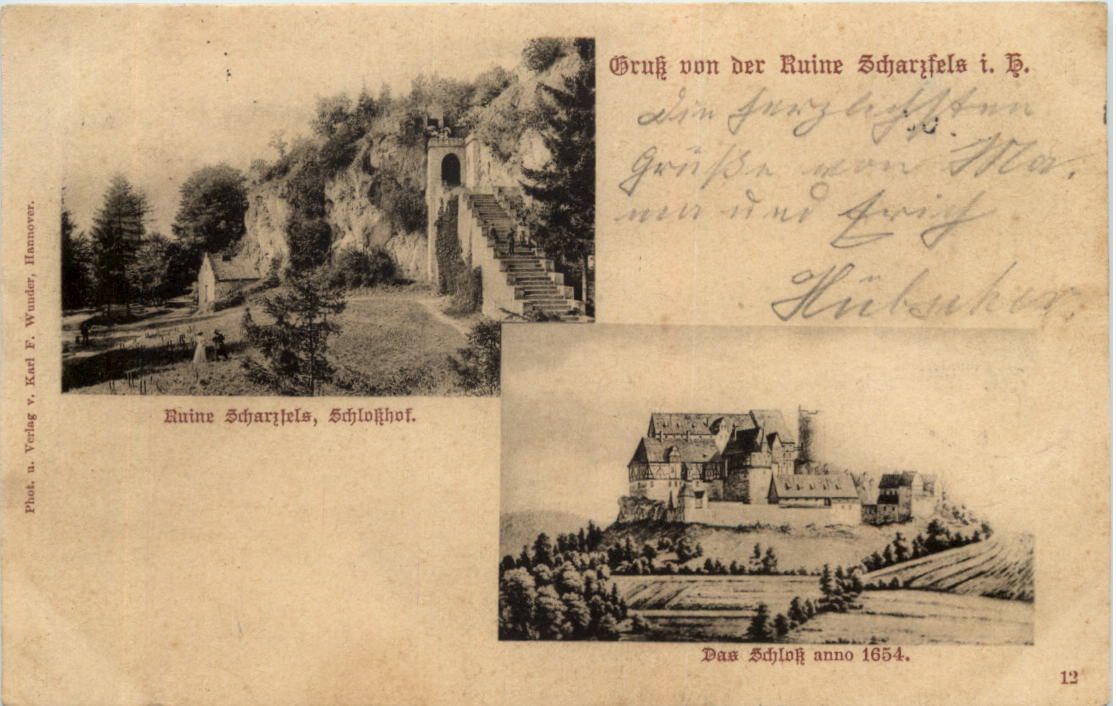 Gruß von der Ruine Scharzfels i. H.
Die herzlichsten
Grüße von Ma-
ma und Erich
Hübscher.
Phot. u. Verlag v. Karl F. Wunder, Hannover.
Ruine Scharzfels, Schloßhof.
Das Schloß anno 1654.
12